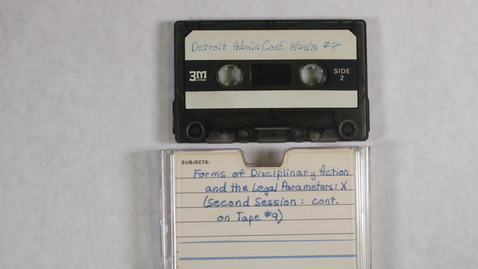 Detroit Admin Conf. 8/24/78 #8
3M
SIDE
2
SUBJECTS:
Forms of Disciplinary Action
and the Legal Parameters: X
(Second Session: cont.
on Tape #9)